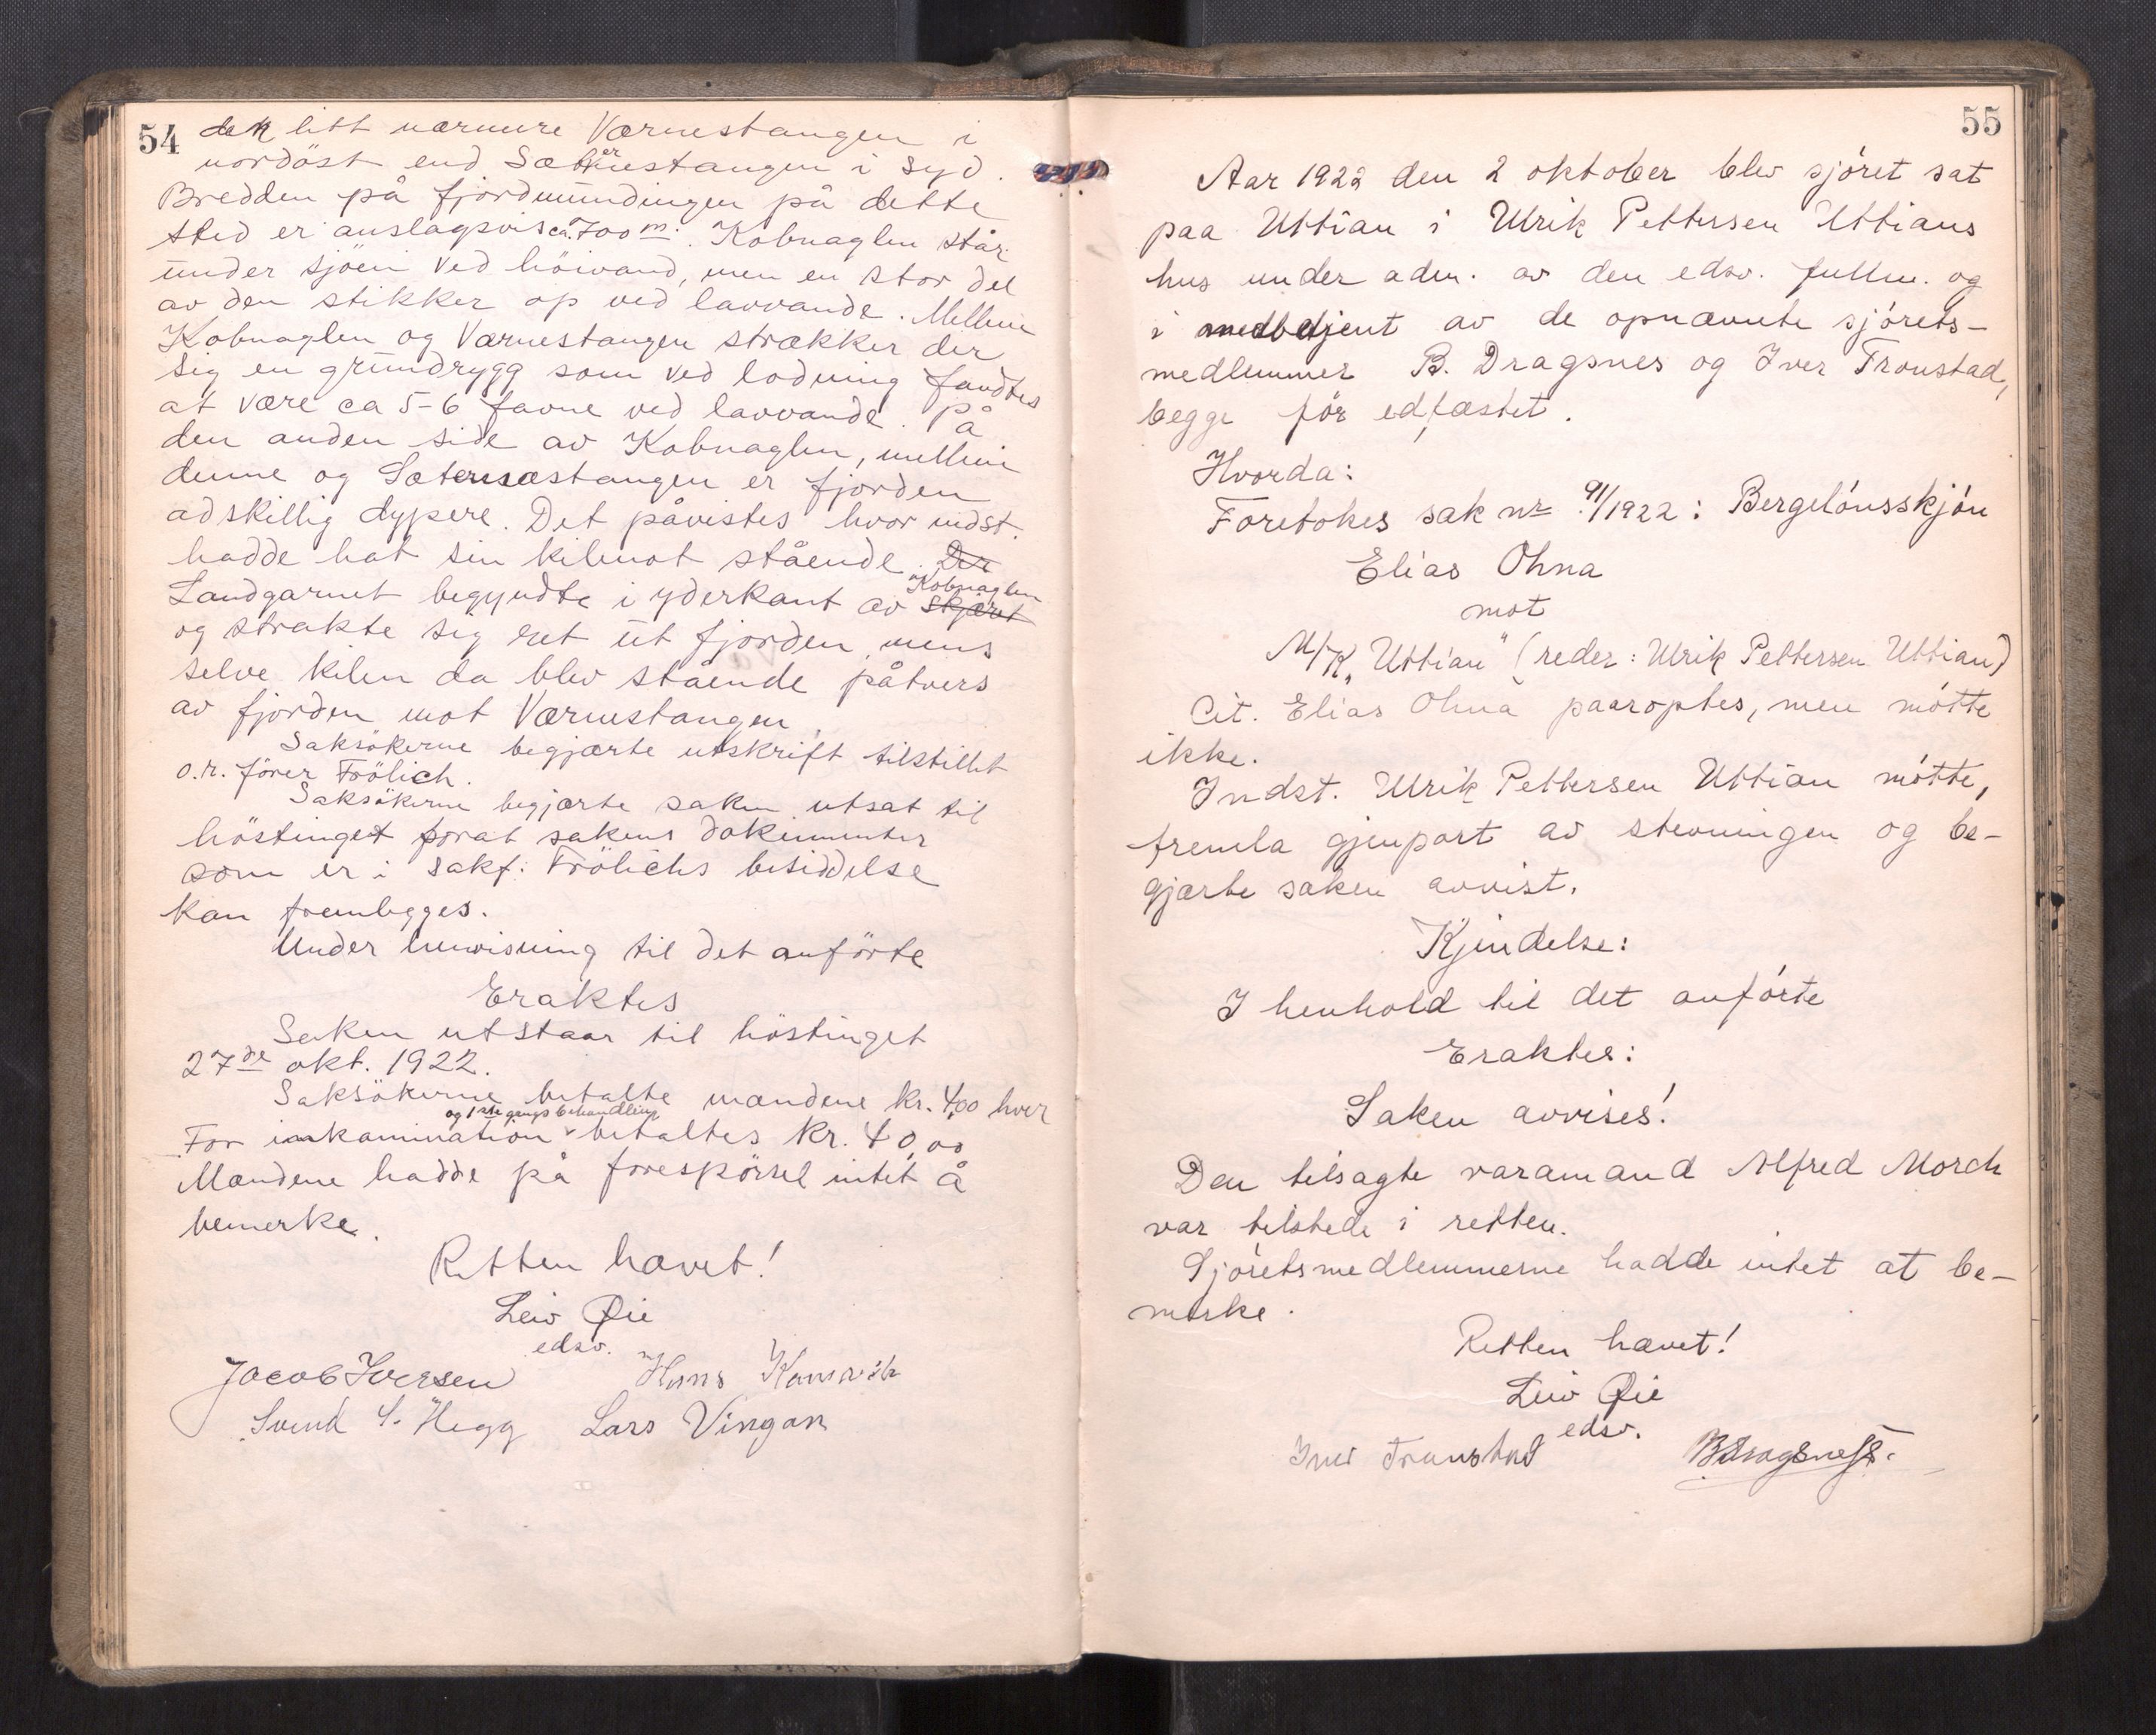 54
den litt nærmere Værnestangen i
nordöst end Sæternestangen i syd.
Bredden på fjordmundingen på dette
sted er anslagsvis ca. 700 m. Kobnaglen står
under sjöen ved höivand, men en stor del
av den stikker op ved lavvande. Mellem
Kobnaglen og Værnestangen strækker der
sig en grundrygg som ved lodning fandtes
at være ca 5-6 favne ved lavvande. På
den anden side av Kobnaglen, mellem
denne og Sæternæstangen er fjorden
adskillig dypere. Det påvistes hvor indst.
hadde hat sin kilenot stående. Der
Landgarnet begyndte i yderkant av skjæret Kobnaglen
og strakte sig ret ut fjorden, mens
selve kilen da blev stående påtvers
av fjorden mot Værnestangen.
Saksökerne begjærte utskrift tilstillet
o.r. förer Frölich.
Saksökerne begjærte saken utsat til
höstinget forat sakens dokumenter
som er i sakf. Frölichs besiddelse
kan fremlegges.
Under henvisning til det anförte
Eraktes
Saken utstaar til höstinget
27de okt. 1922.
Saksökerne betalte mændene kr. 4,00 hver
og 1ste gangs behandling
For inkamination betaltes kr. 40,00
Mændene hadde på forespörsel intet å
bemerke.
Retten hævet!
Leiv Øie
edsv.
Jacob Iversen Hans
Svend S. Hegg Lars Vingan
55
Aar 1922 den 2 oktober blev sjöret sat
paa Uttian i Ulrik Pettersen Uttians
hus under adm. av den edsv. fullm. og
i medbetjent av de opnævnte sjörets-
medlemmer B. Dragsnes og Iver Tronstad,
begge för edfæstet.
Hvorda:
Foretokes sak nr 91/1922: Bergelönsskjön
Elias Ohna
mot
M/K "Uttian" (reder: Ulrik Pettersen Uttian)
Cit. Elias Ohna paaroptes, men mötte
ikke.
Indst. Ulrik Pettersen Uttian mötte,
fremla gjenpart av stevningen og be-
gjærte saken avvist.
Kjendelse:
I henhold til det anförte
Eraktes:
Saken avvises!
Den tilsagte varamand Alfred Morch
var tilstede i retten.
Sjöretsmedlemmerne hadde intet at be-
merke.
Retten hævet!
Leiv Øie
edsv.
Iver Tronstad B Dragsness.